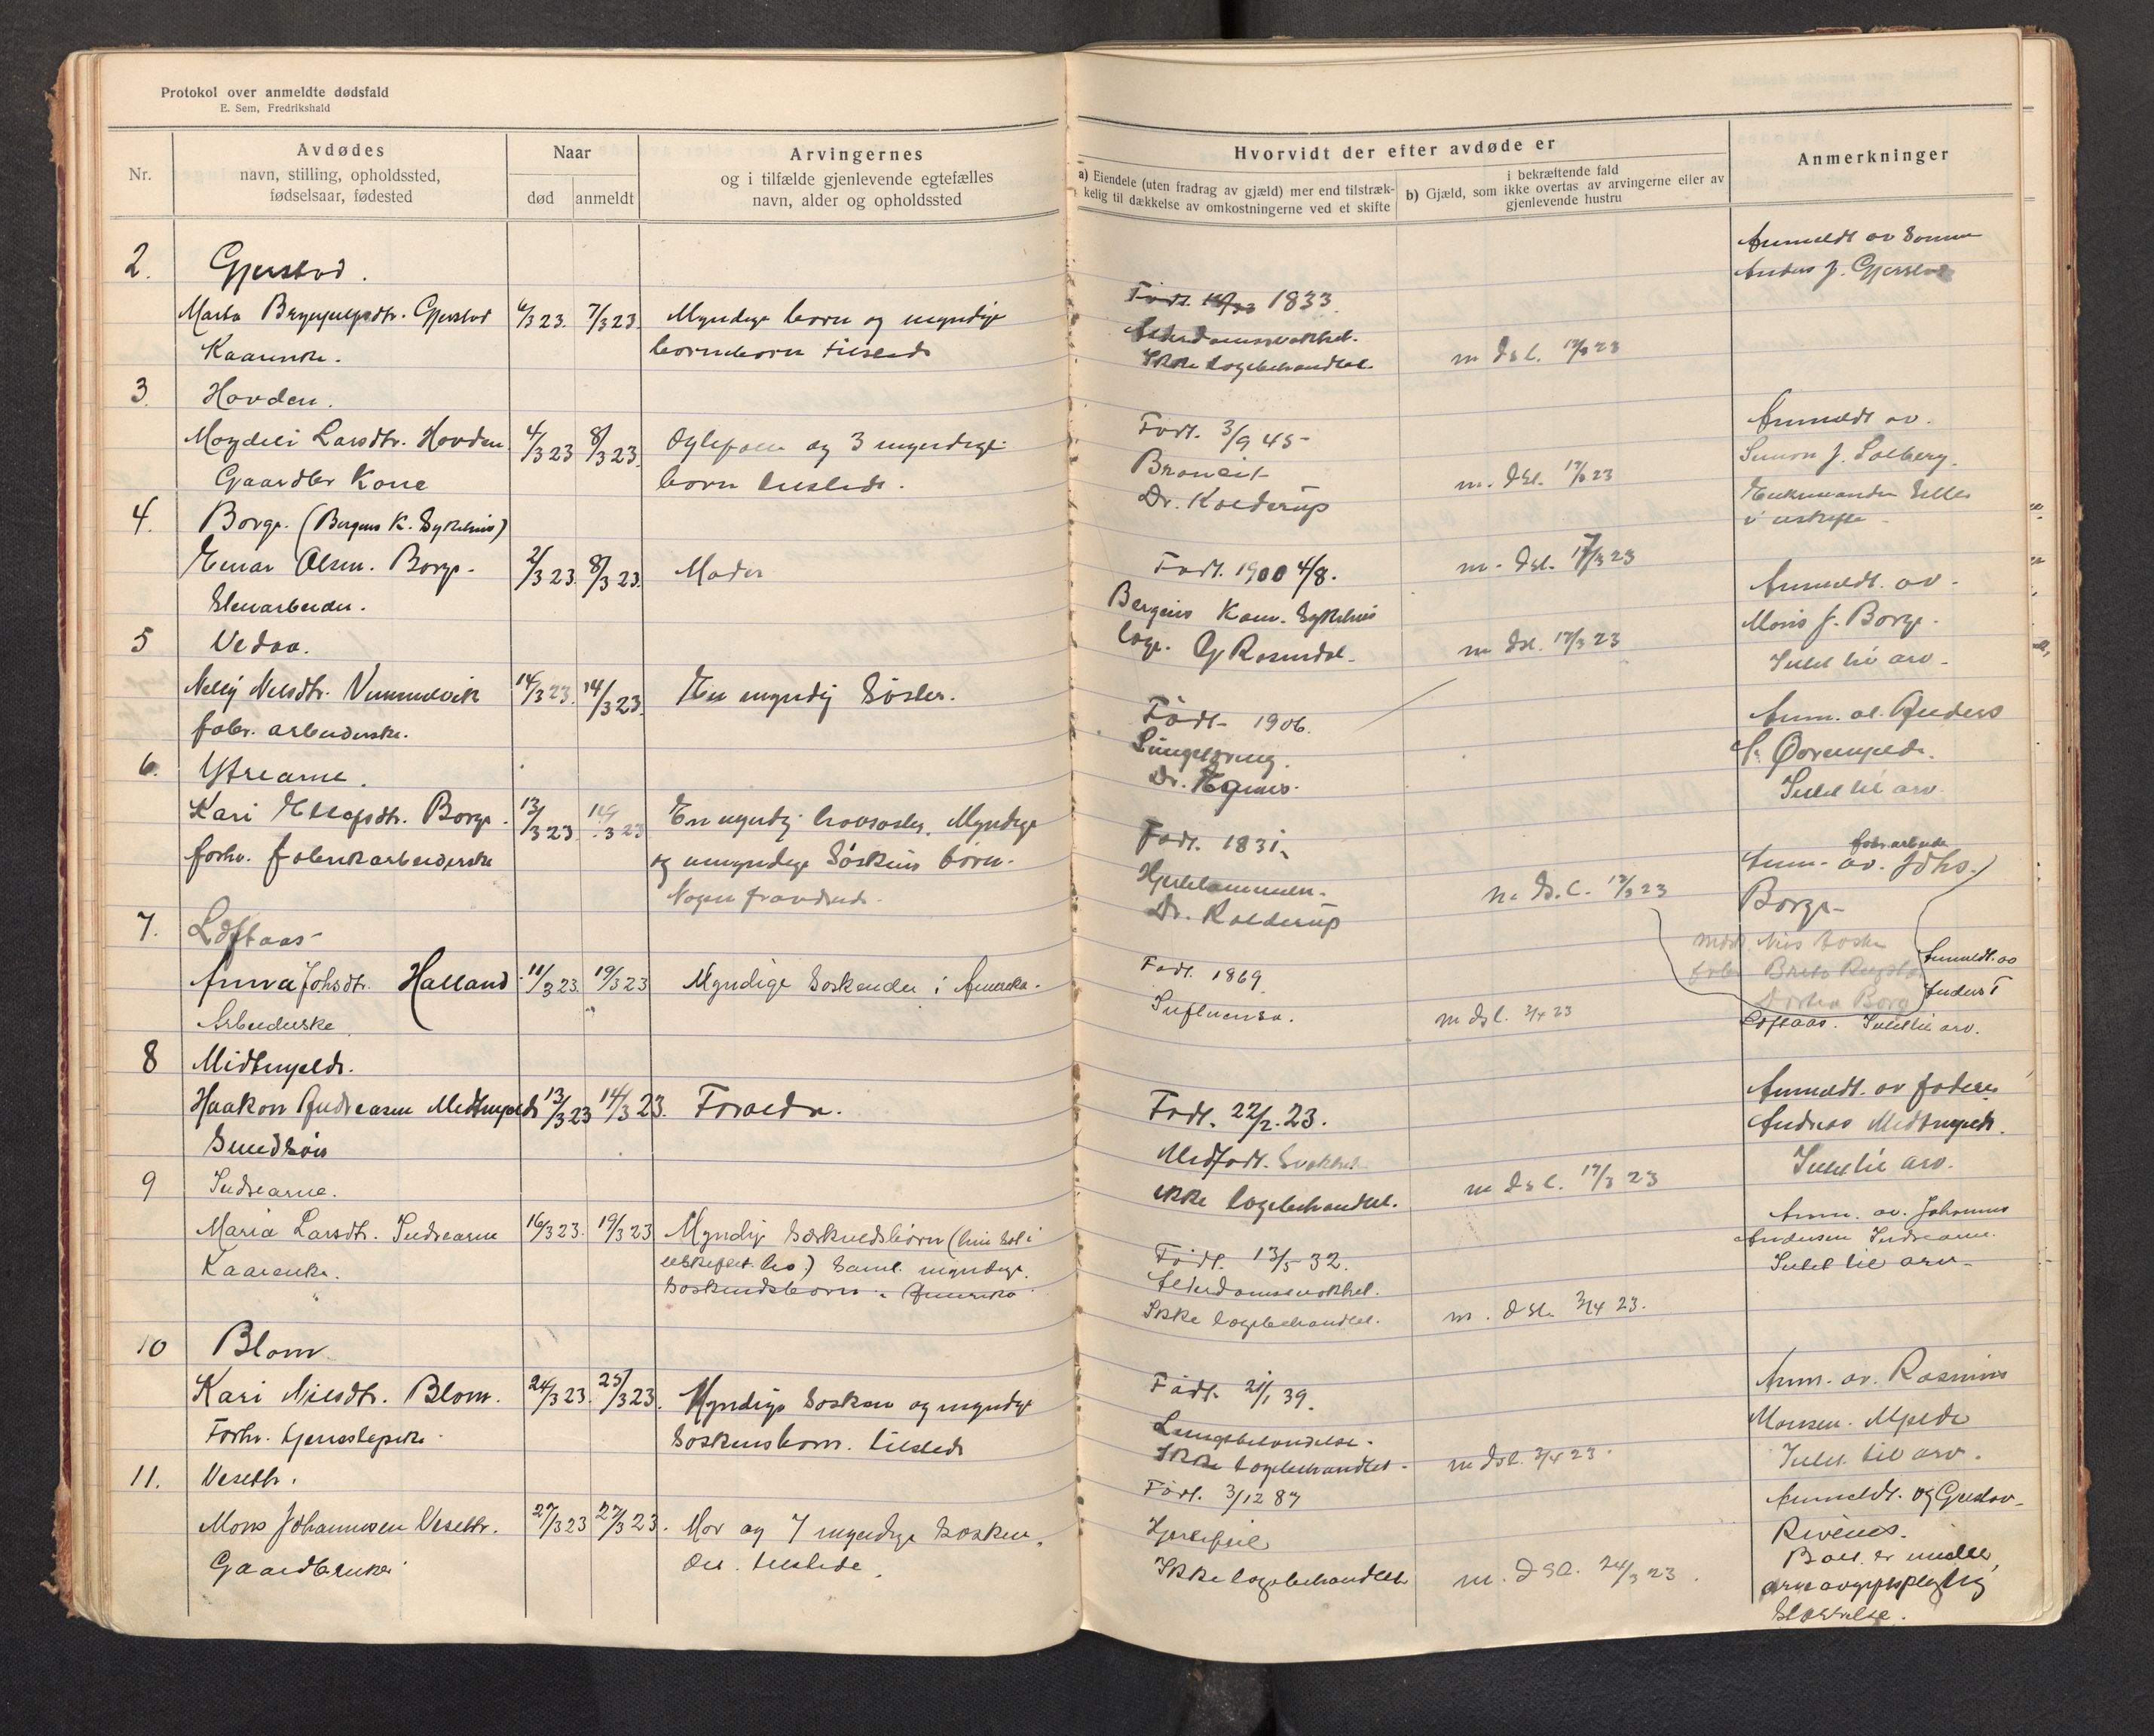 Protokol over anmeldte dødsfald
E. Sem, Fredrikshald
Nr.
Avdødes
navn, stilling, opholdssted,
fødselsaar, fødested
Naar
død
anmeldt
Arvingernes
og i tilfælde gjenlevende egtefælles
navn, alder og opholdssted
Hvorvidt der efter avdøde er
a) Eiendele (uten fradrag av gjæld) mer end tilstræk-
kelig til dækkelse av omkostningerne ved et skifte
i bekræftende fald
b) Gjæld, som ikke overtas av arvingerne eller av
gjenlevende hustru
Anmerkninger
2. Gjerstad.
Marta Gjerstad 7/3 23 Myndige born og myndige
Kaarenke. borneborn tilstede
Født. 1833.
Alderdomssvakhet.
Ikke lægebehandlet. m dsl. 17/3 23
Anmeldt av Sønnen
Anders J. Gjerstad
3. Hovden.
Magdeli Larsdtr. Hovden 4/3 23 8/3 23 Egtefælle og 3 myndige
Gaardbr Kone born tilstede.
Født. 3/9 45
Broncit
Dr. Kolderup m. dsl. 17/3 23
Anmeldt av.
Simon J. Solberg.
Enkemanden sitter
i uskifte
4. Borge. (Bergens K. Sykehus)
Einar Olsen. Borge. 2/3 23. 8/3 23. Moder
Født. 1900 4/8.
Bergens Kom. Sykehus
læge. G Rosendal. m. dsl. 17/3 23
Anmeldt. av.
Mons J. Borge.
Intet til arv.
5 Vedaa.
Nelly Nilsdtr. Vummelvik 14/3 23. 14/3 23. En myndig Søster.
fabr. arbeiderske.
Født 1906.
m dsl. 17/3 23
Anm. al. Anders
Intet til arv.
6. Ytrearne.
Kari Ellefsdtr. Borge. 13/3 23 14/3 23 En myndig halvsøster. Myndige
forhv. fabrikarbeiderske og umyndige Søskens børn.
Født. 1831.
Hjertelammelse.
Dr. Kolderup m. dsl. 17/3 23
Anm. av. fabr.arbeider Johs.
Borge
7. Loftaas
Anna Johsdtr. Halland 11/3 23. 19/3 23 Myndige Søskender i Amerika.
Arbeiderske
Født. 1869.
Influensa. m dsl. 3/4 23
Anmeldt. av
Anders T
Loftaas. Intet til arv.
8 Midtmjelde.
Haakon Andreasen Midtmjelde 13/3 23 14/3 23. Forældre.
Smedsøn
Født. 22/2. 23.
Medfødt. Svakhet
ikke lægebehandlet. m dsl. 17/3 23
Anmeldt. av faderen
Andreas Midtmjelde.
Intet til arv.
9 Indrearne.
Maria Larsdtr. Indrearne 16/3 23. 19/3 23 Myndige Søskendsbørn (hun sat i
uskiftet bo.) Samt. myndige.
Kaarenke. Søskendsbørn i Amerika
Født. 13/5 32.
Alderdomssvakhet.
Ikke lægebehandlet. m. dsl. 3/4 23.
Anm. av. Johannes
Andersen Indrearne.
Intet til arv.
10 Blom
Kari Nilsdtr. Blom. 24/3 23. 25/3 23. Myndige Søsken og myndige
Forhv. tjenestepike. Søskensborn. tilstede
Født. 21/1 39.
Lungebetændelse.
Ikke lægebehandlet. m dsl. 3/4 23.
Anm. av. Rasmus
Monsen. Mjelde
Intet til arv.
11. Vesetr.
Mons Johannesen Vesetr. 27/3 23 27/3 23. Mor og 7 myndige Søsken,
Gaardbruker der tilstede.
Født. 3/12 87
Hjertefeil
Ikke lægebehandlet m. dsl. 24/3 23.
Anmeldt. av Gustav
Rivenes.
Boet er under
arveavgiftspligtig
Størrelse.